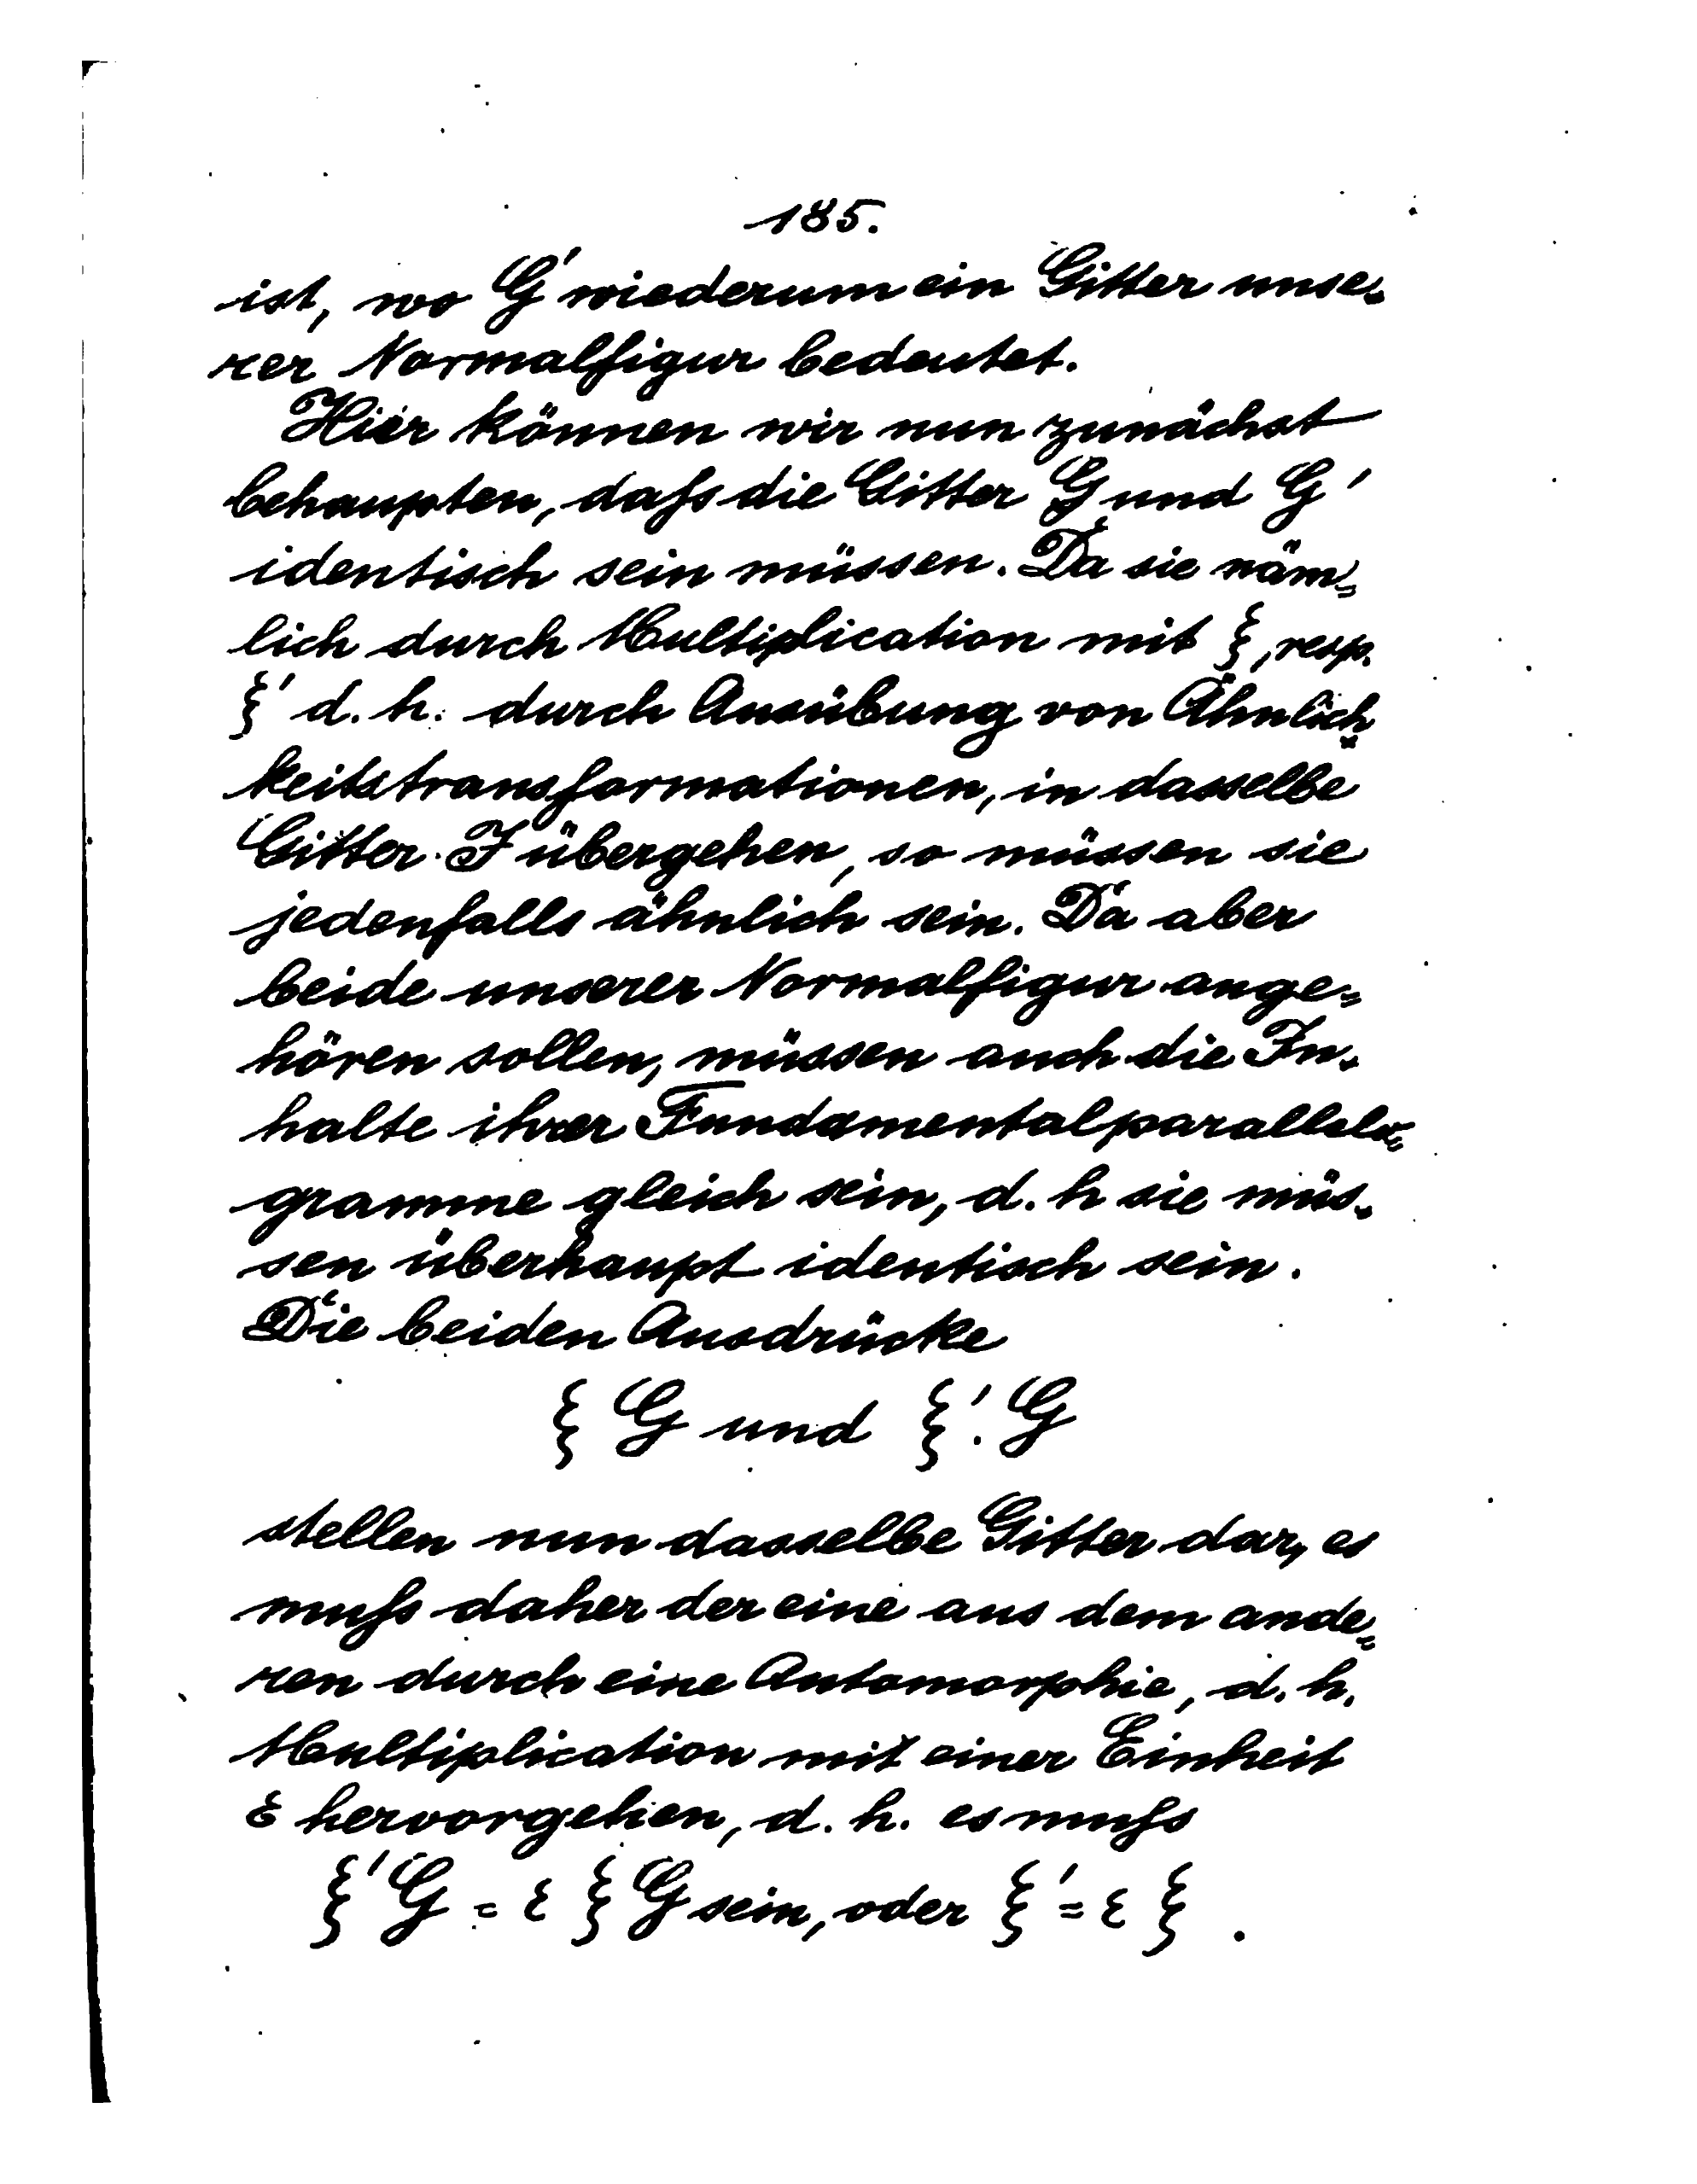 185.
ist, wo G' wiederum ein Gitter unse-
rer Normalfigur bedeutet.
Hier können wir nun zunächst
behaupten, daſs die Gitter G und G'
identisch sein müssen. Da sie näm-
lich durch Multiplication mit ξ, resp.
ξ' d. h. durch Ausübung von Ähnlich-
keitstransformationen, in dasselbe
Gitter J übergehen, so müssen sie
jedenfalls ähnlich sein. Da aber
beide unserer Normalfigur ange-
hören sollen, müssen auch die In-
halte ihrer Fundamentalparallelo-
gramme gleich sein, d. h sie müs-
sen überhaupt identisch sein.
Die beiden Ausdrücke
ξ G und ξ'. G
stellen nun dasselbe Gitter dar, es
muſs daher der eine aus dem ande-
ren durch eine Automorphie, d. h.
Multiplication mit einer Einheit
ε hervorgehen, d. h. es muſs
ξ' G = ε ξ G sein, oder ξ' = ε ξ .